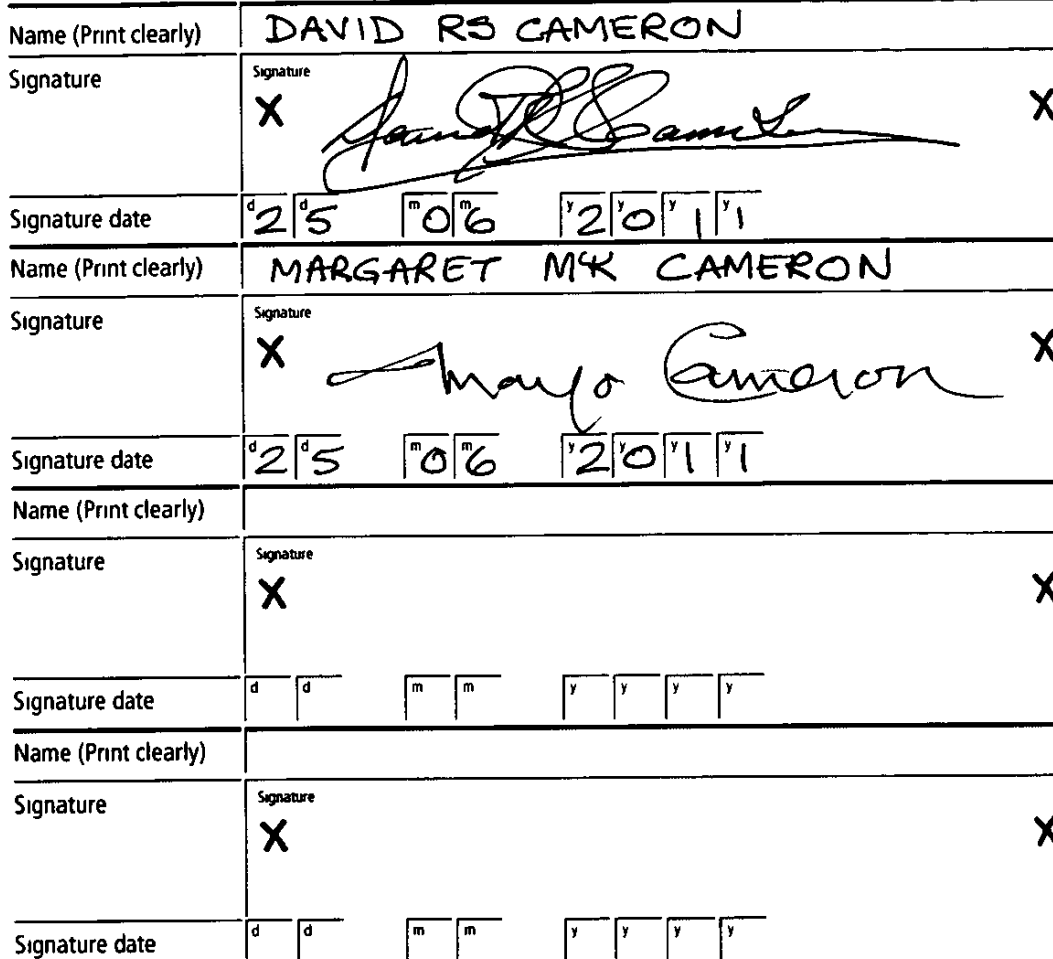 Name (Print clearly) DAVID RS CAMERON
Signature Signature
X X
Signature date d2 d5 m0 m6 y2 y0 y1 y1
Name (Print clearly) MARGARET McK CAMERON
Signature Signature
X Margo Cameron X
Signature date d2 d5 m0 m6 y2 y0 y1 y1
Name (Print clearly)
Signature Signature
X X
Signature date d d m m y y y y
Name (Print clearly)
Signature Signature
X X
Signature date d d m m y y y y